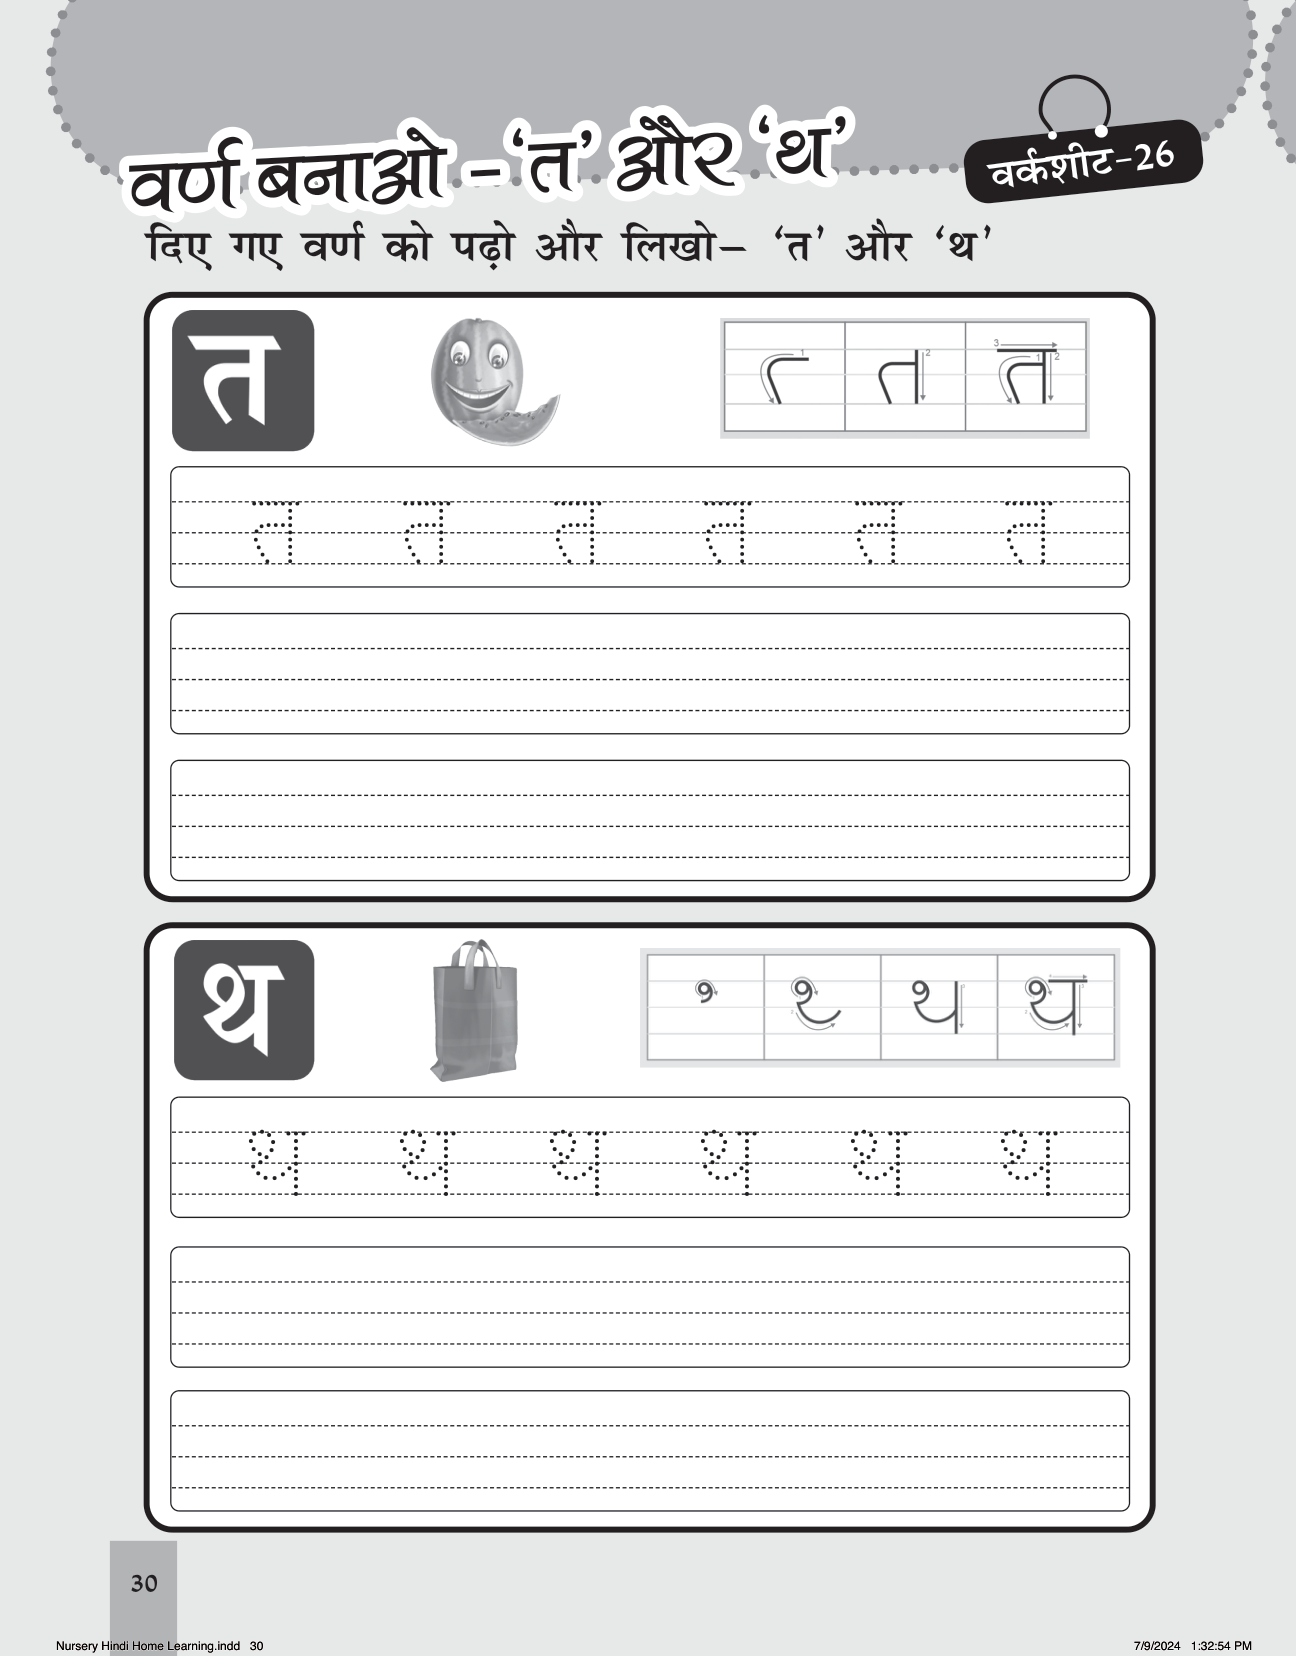 वर्ण बनाओ – ‘त’ और ‘थ’
वर्कशीट-26
दिए गए वर्ण को पढ़ो और लिखो– ‘त’ और ‘थ’
त
1 2 3 1 2
त त त त त त
थ
थ थ थ थ थ थ
30
Nursery Hindi Home Learning.indd 30
7/9/2024 1:32:54 PM